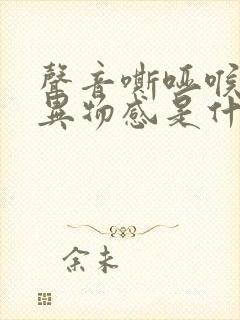 聲音嘶啞喉
異物感是什
余未